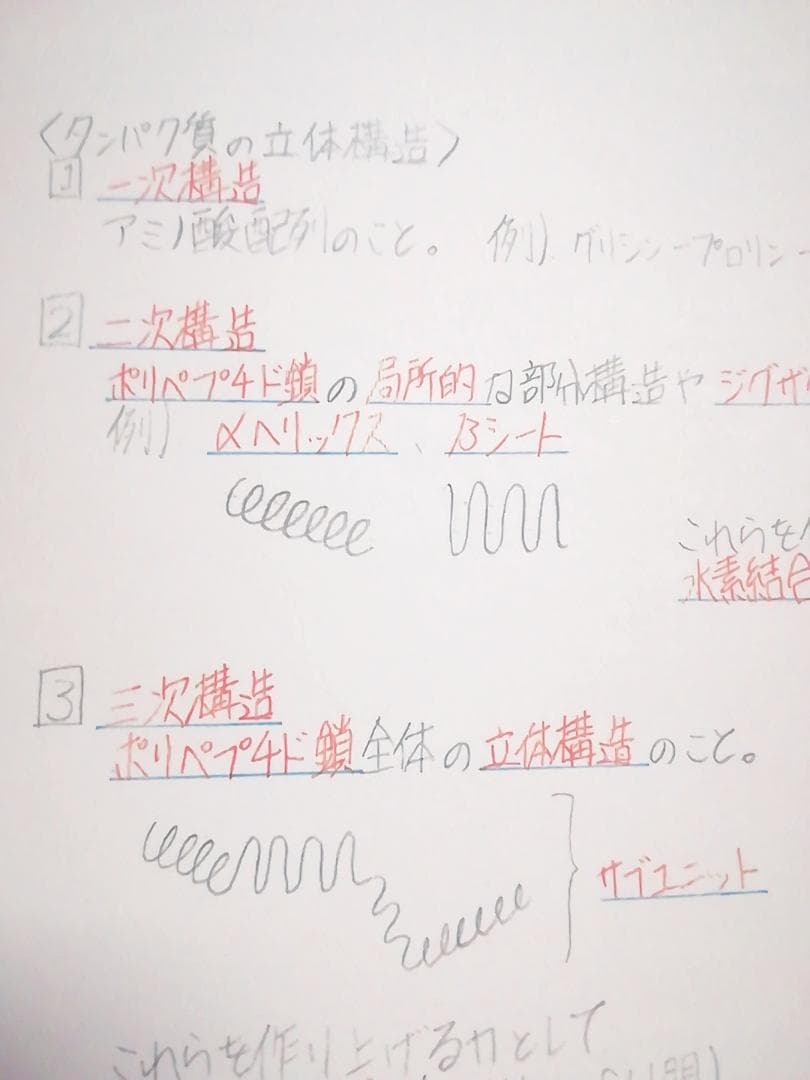 〈タンパク質の立体構造〉
1 一次構造
アミノ酸配列のこと。 例) グリシン-プロリン-
2 二次構造
ポリペプチド鎖の局所的な部分構造やジグザ
例) αヘリックス、βシート
これらを
水素結合
3 三次構造
ポリペプチド鎖全体の立体構造のこと。
サブユニット
これらを作り上げる力として